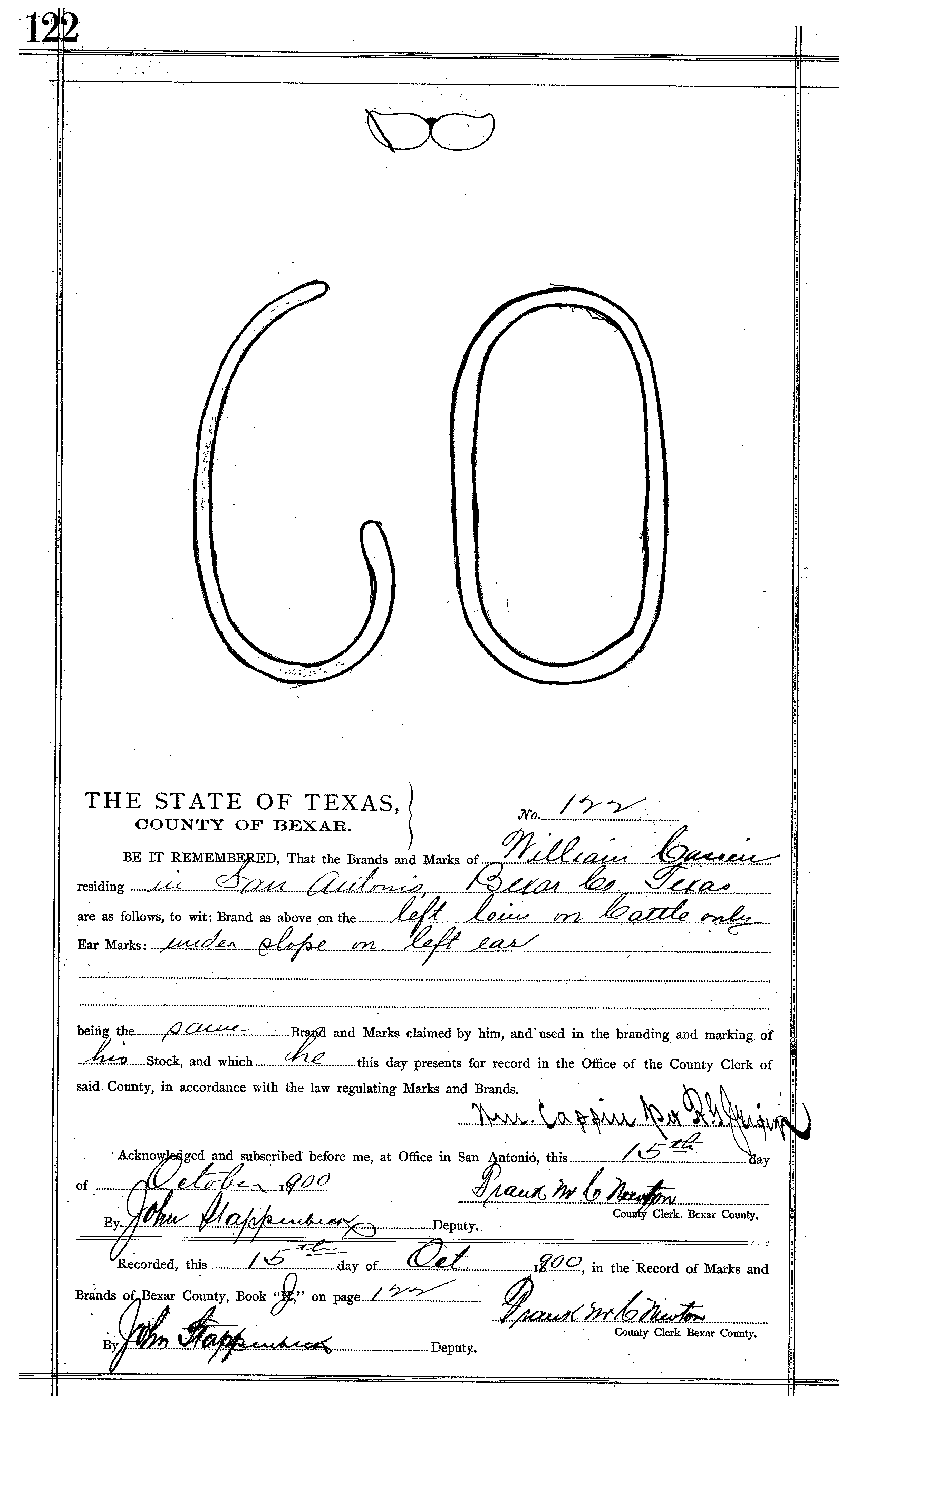 122
CO
THE STATE OF TEXAS,
COUNTY OF BEXAR.
No. 122
BE IT REMEMBERED, That the Brands and Marks of William
residing in San Antonio, Bexar Co Texas
are as follows, to wit: Brand as above on the left loin on Cattle only
Ear Marks: under slope on left ear
being the same Brand and Marks claimed by him, and used in the branding and marking of
his Stock, and which he this day presents for record in the Office of the County Clerk of
said County, in accordance with the law regulating Marks and Brands.
Wm. per
Acknowledged and subscribed before me, at Office in San Antonio, this 15th day
of October 1900 Frank M C Newton
County Clerk Bexar County.
By John Stappenbeck Deputy.
Recorded, this 15th day of Oct 1900, in the Record of Marks and
Brands of Bexar County, Book "J," on page 122
Frank M C Newton
County Clerk Bexar County.
By John Stappenbeck Deputy.